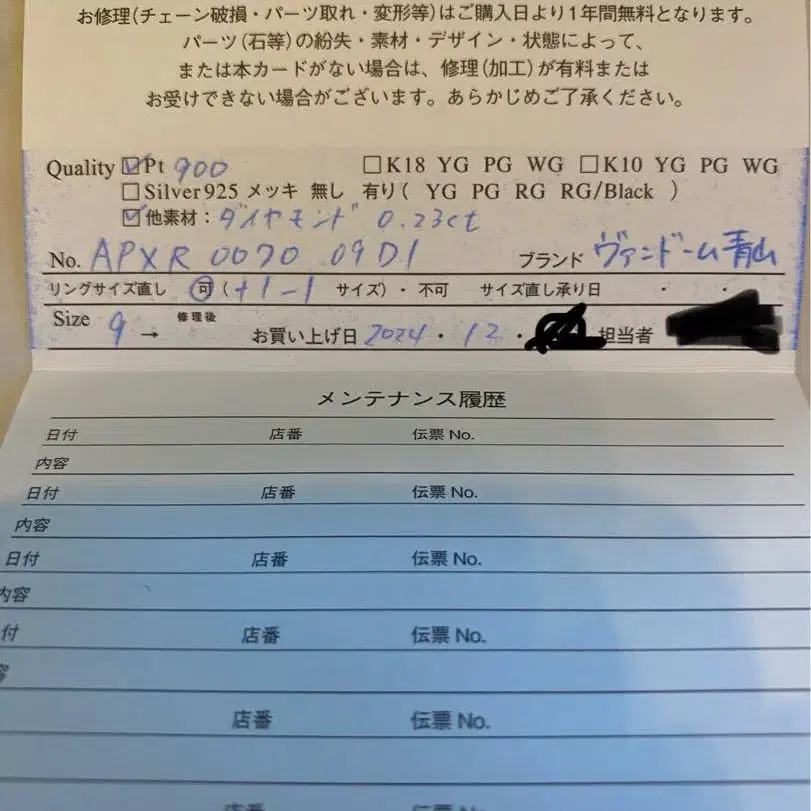 お修理(チェーン破損・パーツ取れ・変形等)はご購入日より1年間無料となります。
パーツ(石等)の紛失・素材・デザイン・状態によって、
または本カードがない場合は、修理(加工)が有料または
お受けできない場合がございます。あらかじめご了承ください。
Quality ☑Pt 900 □K18 YG PG WG □K10 YG PG WG
□Silver925 メッキ 無し 有り( YG PG RG RG/Black )
☑他素材:ダイヤモンド 0.23ct
No. APXR 0070 09D1 ブランド ヴァンドーム青山
リングサイズ直し 可(+1-1 サイズ)・不可 サイズ直し承り日 ・ ・
Size 9 → 修理後 お買い上げ日 2024・12・ 担当者
メンテナンス履歴
日付 店番 伝票No.
内容
日付 店番 伝票No.
内容
日付 店番 伝票No.
内容
付 店番 伝票No.
容
店番 伝票No.